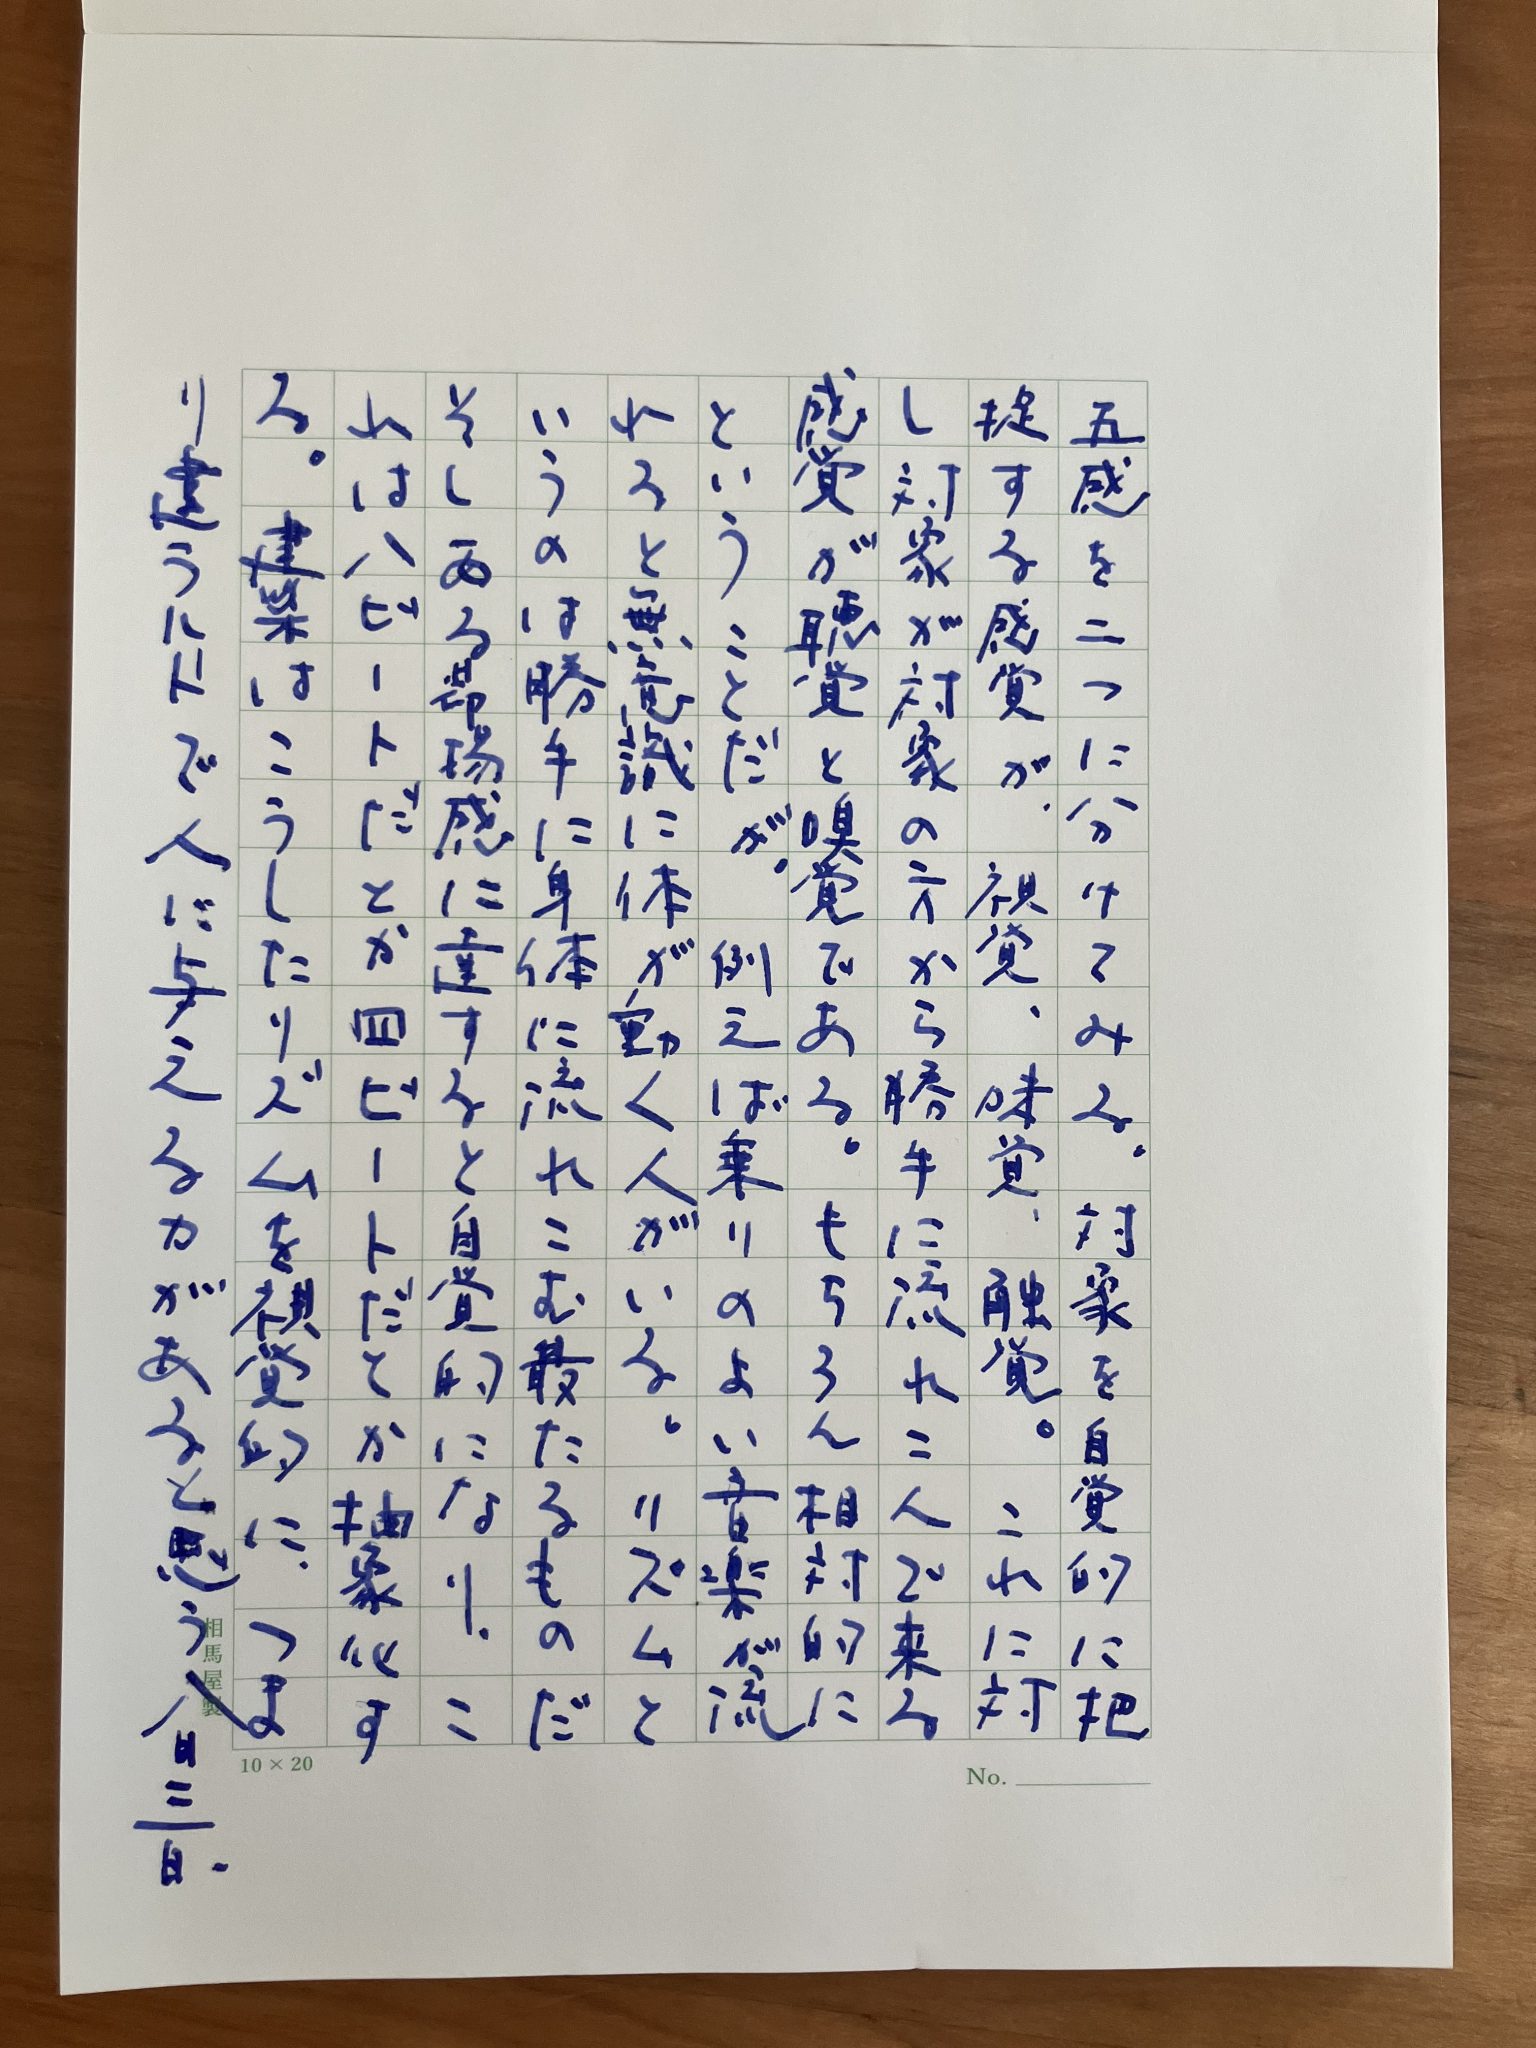 五感を二つに分けてみる。対象を自覚的に把
捉する感覚が、視覚、味覚、触覚。これに対
し対象が対象の方から勝手に流れこんで来る
感覚が聴覚と嗅覚である。もちろん相対的に
ということだが。例えば乗りのよい音楽が流
れると無意識に体が動く人がいる。リズムと
いうのは勝手に身体に流れこむ最たるものだ
そしある昂揚感に達すると自覚的になり、こ
れは八ビートだとか四ビートだとか抽象化す
る。建築はこうしたリズムを視覚的に、つま
り で人に与える力があると思う
相馬屋製
10 × 20
No.